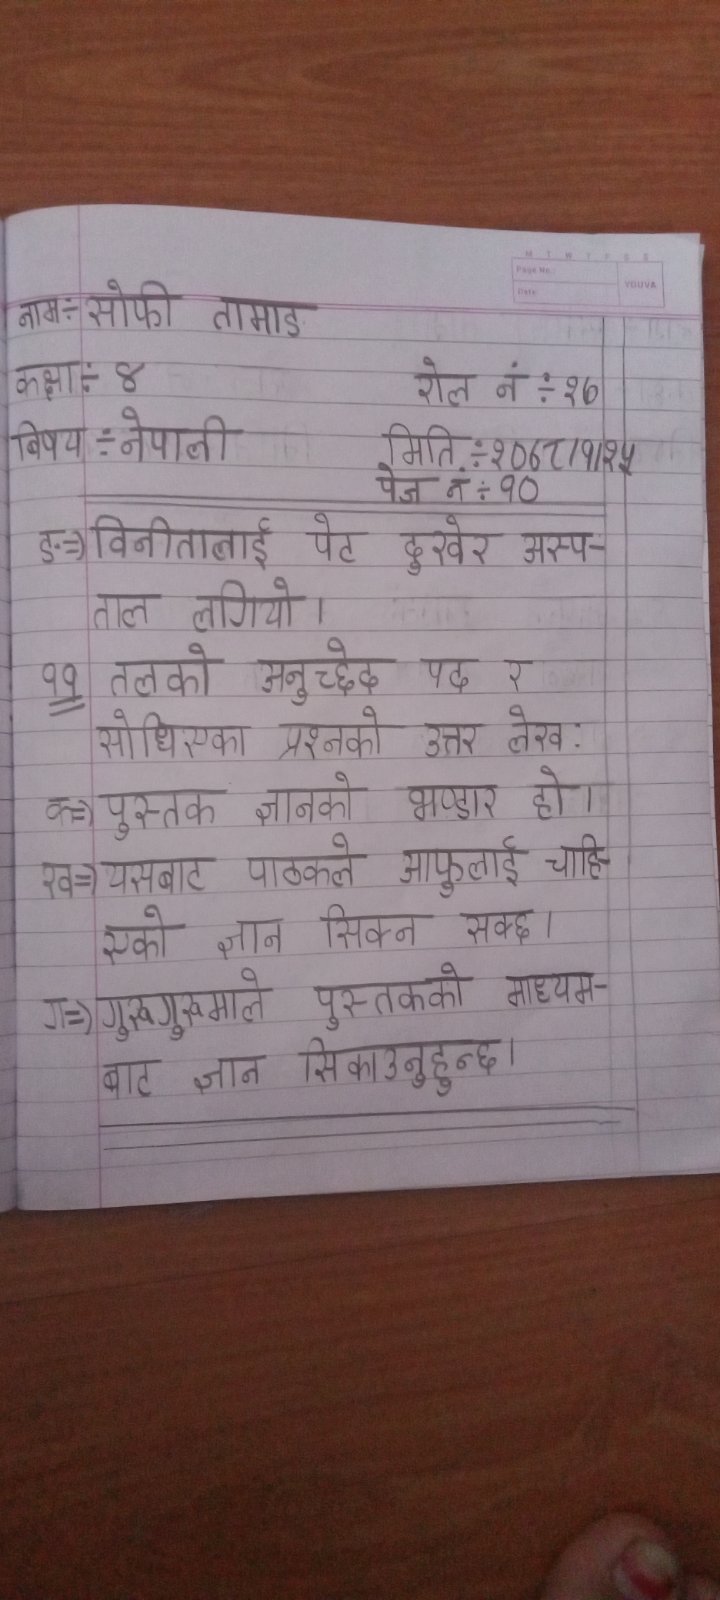 M T W T F S S
Page No.:
Date:
YOUVA
नाम÷ सोफी तामाङ
कक्षा÷ ४ रोल नं ÷२७
बिषय ÷नेपाली मिति÷२०७८/१/२५
पेज नं÷१०
ङ⇒ विनीतालाई पेट दुखेर अस्प-
ताल लगियो।
११ तलको अनुच्छेद पद र
सोधिएका प्रश्नको उत्तर लेख:
क⇒ पुस्तक ज्ञानको भण्डार हो।
ख⇒ यसबाट पाठकले आफुलाई चाहि-
एको ज्ञान सिक्न सक्छ।
ग⇒ गुरुगुरुमाले पुस्तकको माध्यम-
बाट ज्ञान सिकाउनुहुन्छ।